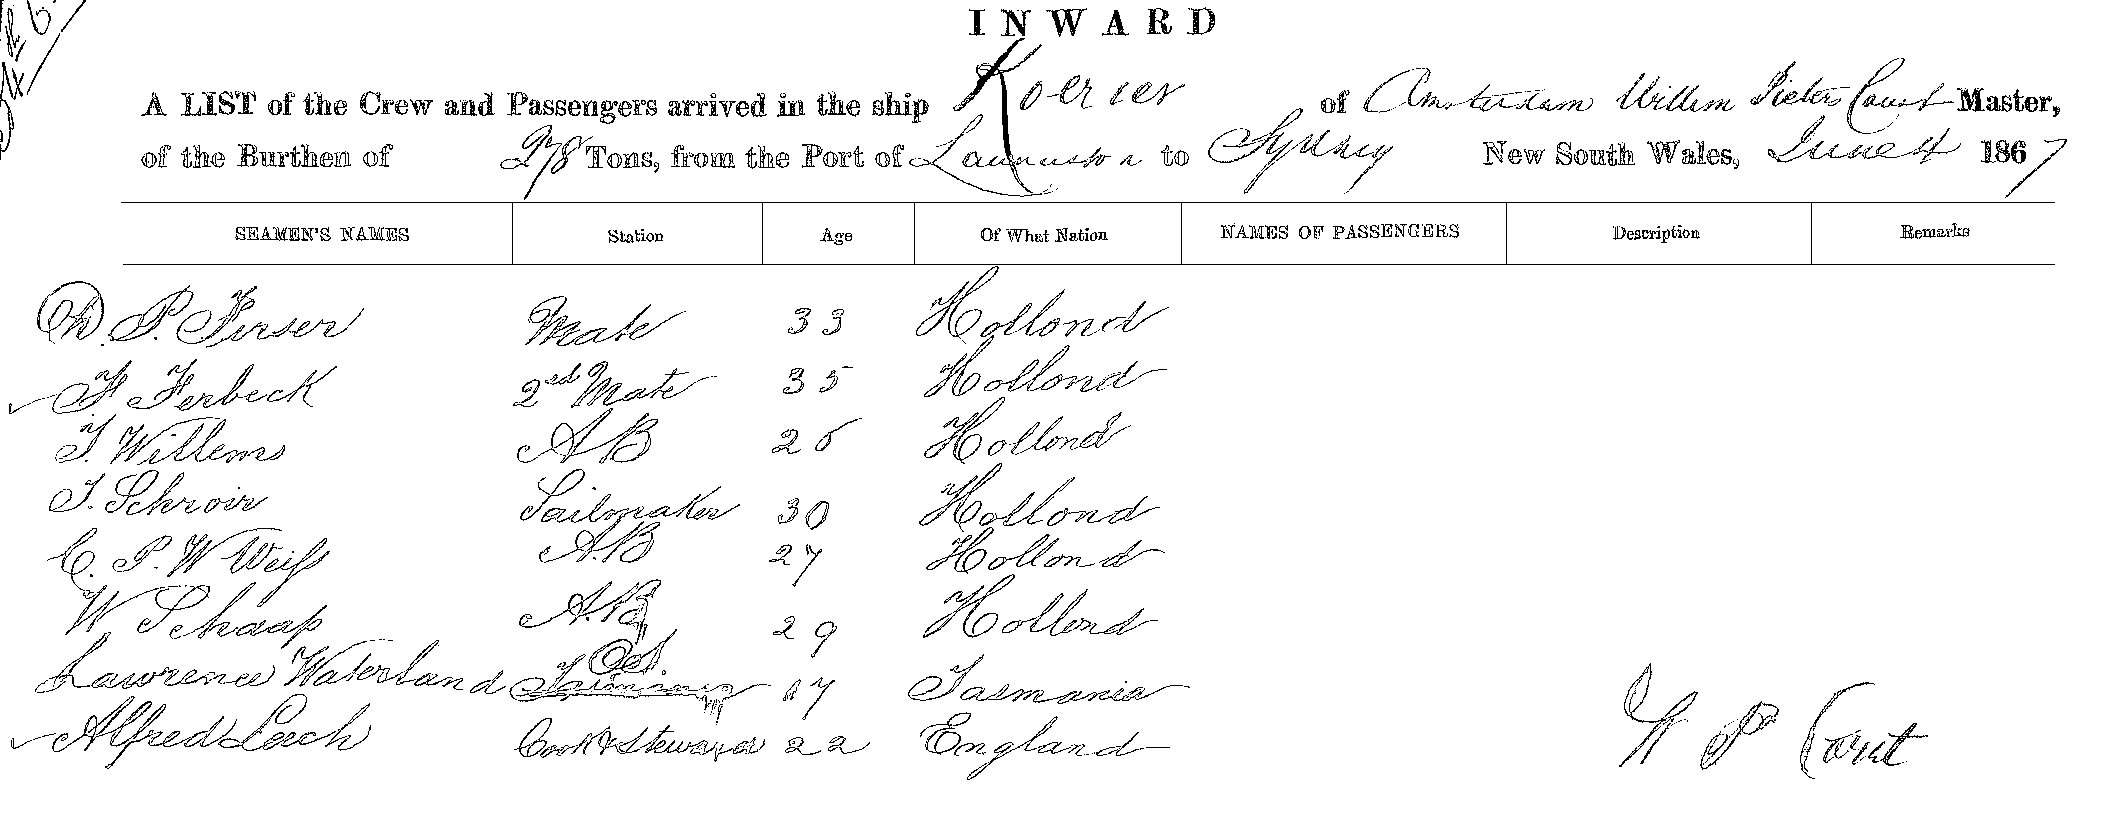 INWARD
A LIST of the Crew and Passengers arrived in the ship Koerier of Amsterdam Willem Pieters Court Master,
of the Burthen of 278 Tons, from the Port of Launceston to Sydney New South Wales, June 4 1867
SEAMEN'S NAMES Station Age Of What Nation NAMES OF PASSENGERS Description Remarks
P. Perser Mate 33 Hollond
F Ferbeck 2nd Mate 35 Hollond
T. Willems AB 26 Hollond
T. Schroir Sailmaker 30 Hollond
C. P. W Weiss A.B 27 Hollond
W Schaap A.B 29 Hollond
Lawrence Waterland O.S. 17 Tasmania
Alfred Leech Cook & Steward 22 England
W P Court